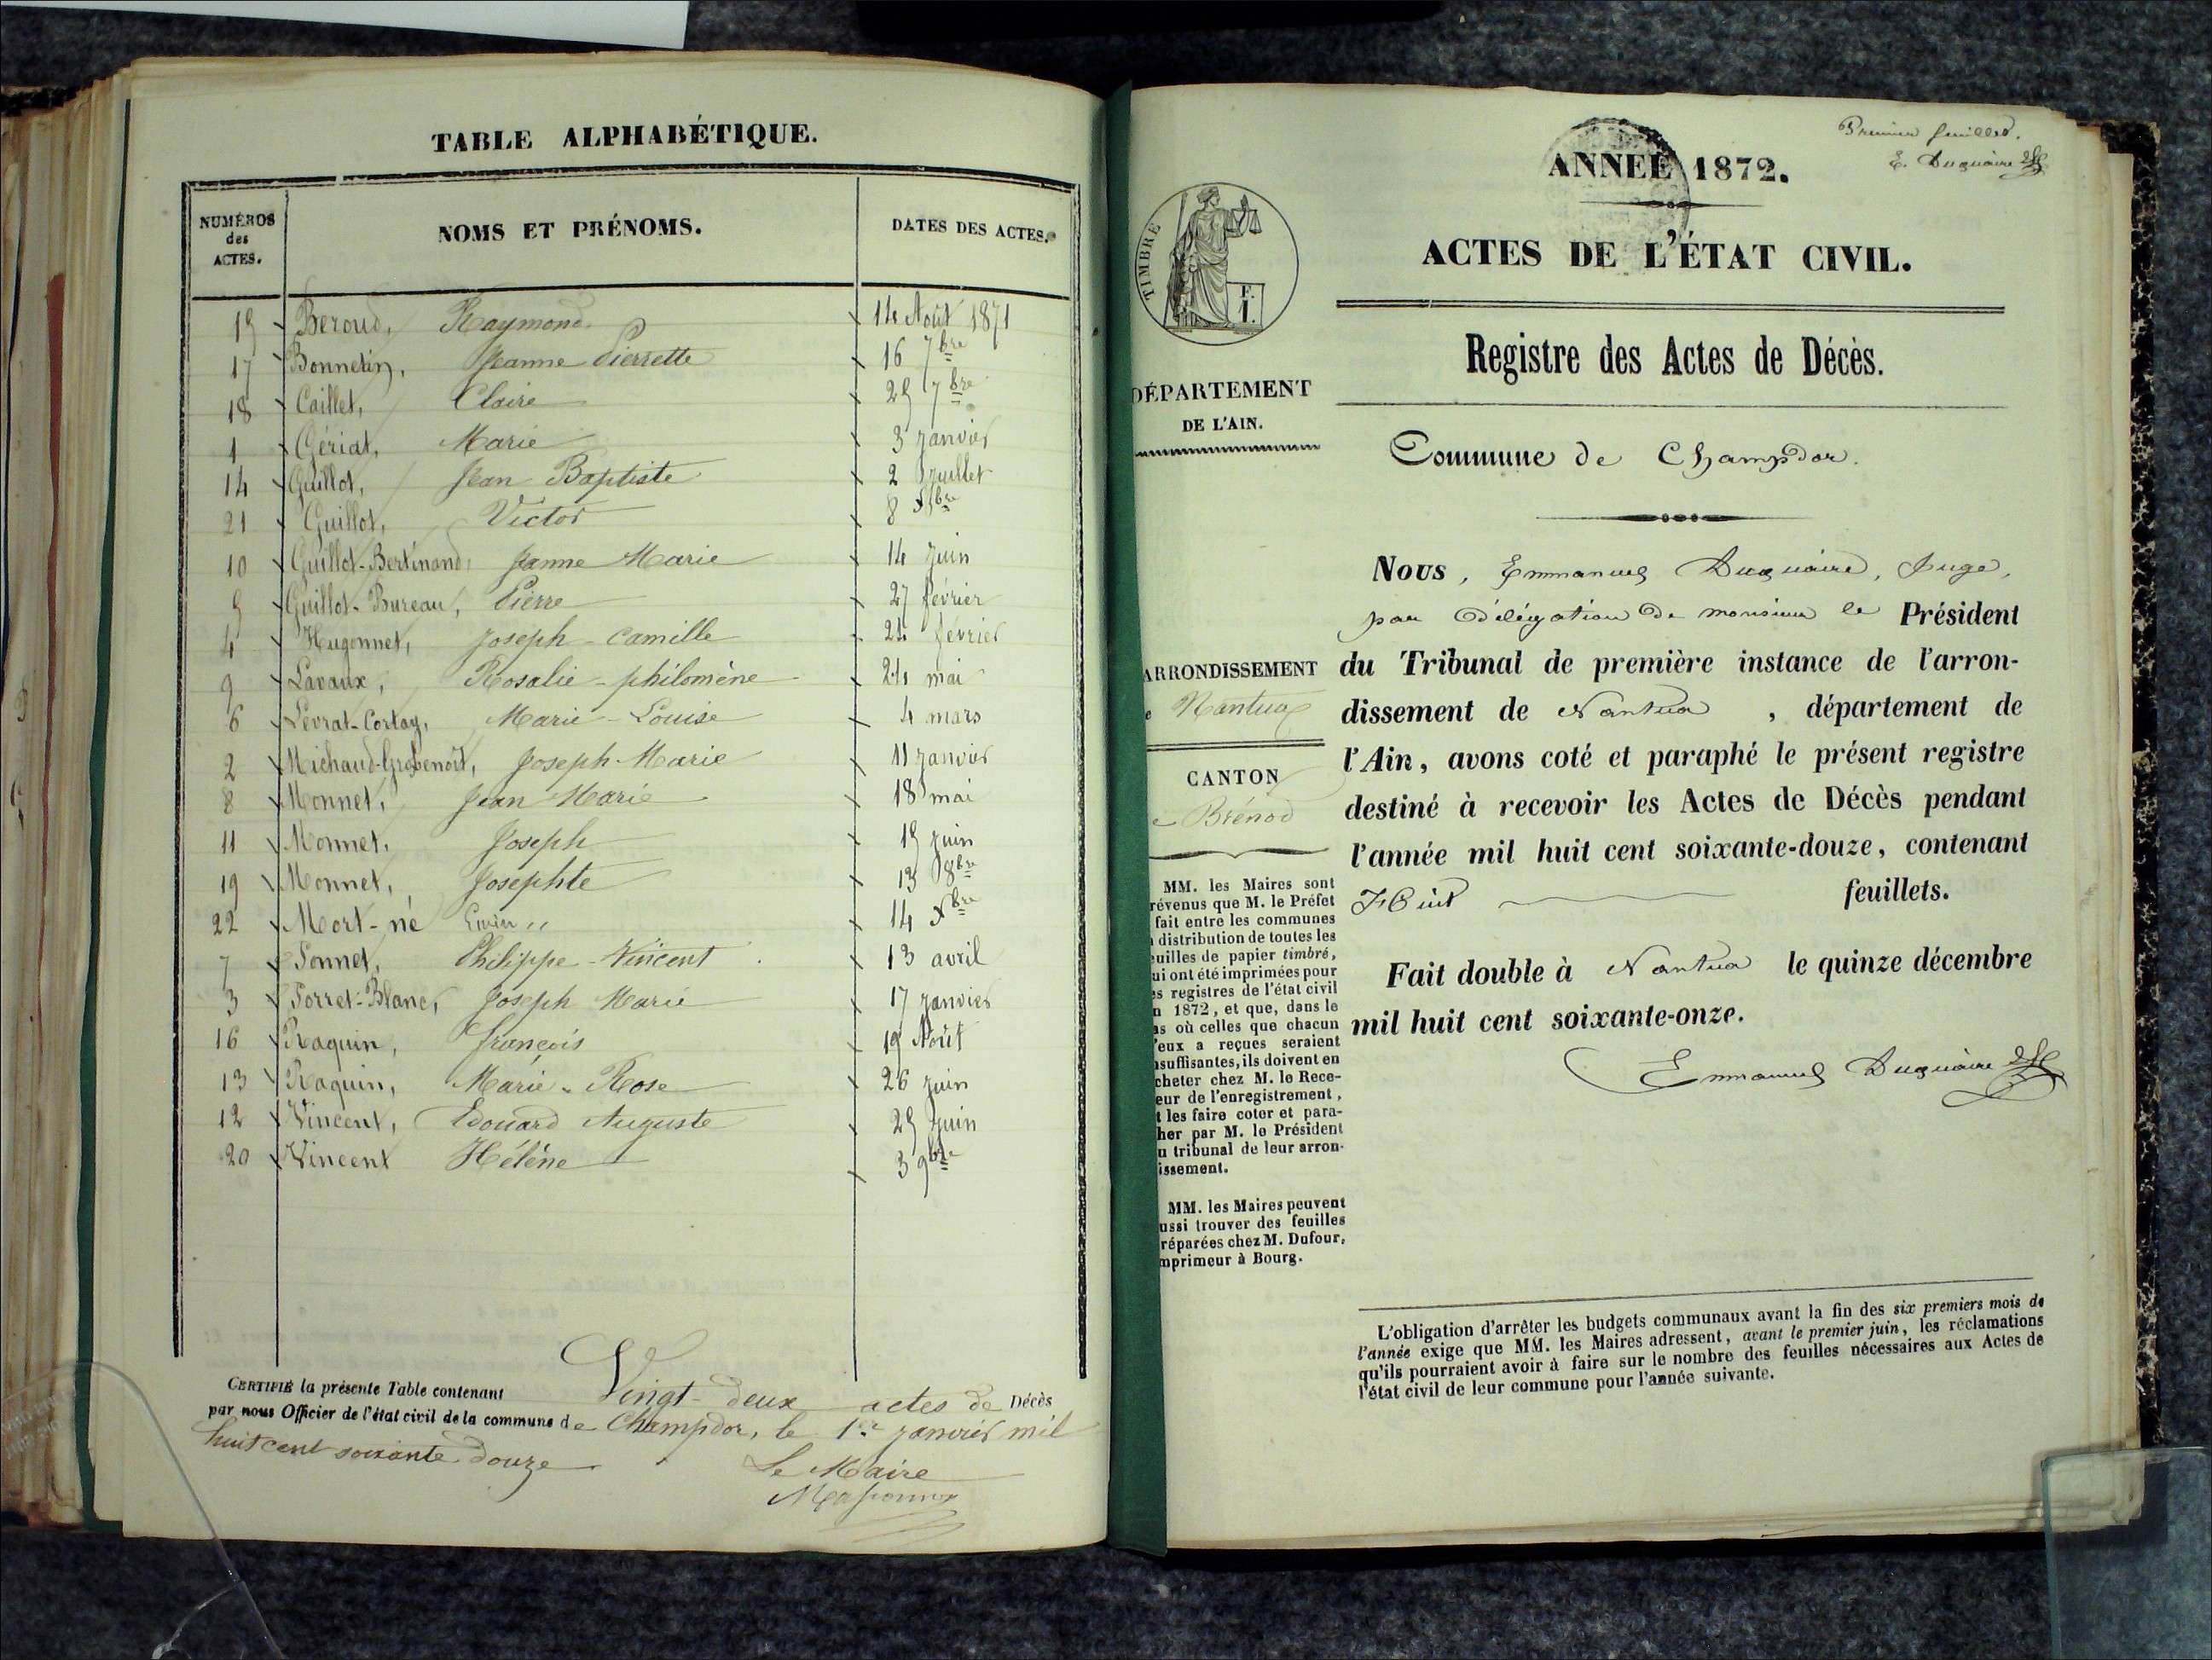 TABLE ALPHABÉTIQUE.
NUMÉROS des ACTES. NOMS ET PRÉNOMS. DATES DES ACTES.
15 Beroud, Raymond 14 Août 1871
17 Bonnetin, Jeanne Pierrette 16 7bre
18 Caillet, Claire 25 7bre
1 Gériat, Marie 3 janvier
14 Guillot, Jean Baptiste 2 Juillet
21 Guillot, Victor 8 Xbre
10 Guillot-Bertinand, Jeanne Marie 14 juin
5 Guillot-Bureau, Pierre 27 février
4 Hugonnet, Joseph-Camille 24 février
9 Lavaux, Rosalie-philomène 24 mai
6 Levrat-Cortay, Marie-Louise 4 mars
2 Michaud-Grosbenoît, Joseph-Marie 11 janvier
8 Monnet, Jean Marie 18 mai
11 Monnet, Joseph 15 juin
19 Monnet, Josephte 13 8bre
22 Mort-né 14 Xbre
7 Sonnet, Philippe-Vincent 13 avril
3 Porret-Blanc, Joseph Marie 17 janvier
16 Raquin, françois 19 Août
13 Raquin, Marie-Rose 26 juin
12 Vincent, Edouard Auguste 25 juin
20 Vincent Hélène 3 9bre
CERTIFIÉ la présente Table contenant Vingt-deux actes de Décès
par nous Officier de l'état civil de la commune de Champdor, le 1er janvier mil
huit cent soixante douze
Le Maire
Premier feuillet.
E. Duquaire
ANNÉE 1872.
ACTES DE L'ÉTAT CIVIL.
TIMBRE
F.
1.
Registre des Actes de Décès.
DÉPARTEMENT
DE L'AIN.
Commune de Champdor.
Nous, Emmanuel Duquaire, Juge,
par délégation de monsieur le Président
du Tribunal de première instance de l'arron-
dissement de Nantua, département de
l'Ain, avons coté et paraphé le présent registre
destiné à recevoir les Actes de Décès pendant
l'année mil huit cent soixante-douze, contenant
Huit feuillets.
Fait double à Nantua le quinze décembre
mil huit cent soixante-onze.
Emmanuel Duquaire
ARRONDISSEMENT
e Nantua
CANTON
e Brénod
MM. les Maires sont
révenus que M. le Préfet
fait entre les communes
a distribution de toutes les
euilles de papier timbré,
ui ont été imprimées pour
es registres de l'état civil
n 1872, et que, dans le
as où celles que chacun
'eux a reçues seraient
nsuffisantes, ils doivent en
cheter chez M. le Rece-
eur de l'enregistrement,
t les faire coter et para-
her par M. le Président
u tribunal de leur arron-
issement.
MM. les Maires peuvent
ussi trouver des feuilles
réparées chez M. Dufour,
mprimeur à Bourg.
L'obligation d'arrêter les budgets communaux avant la fin des six premiers mois de
l'année exige que MM. les Maires adressent, avant le premier juin, les réclamations
qu'ils pourraient avoir à faire sur le nombre des feuilles nécessaires aux Actes de
l'état civil de leur commune pour l'année suivante.